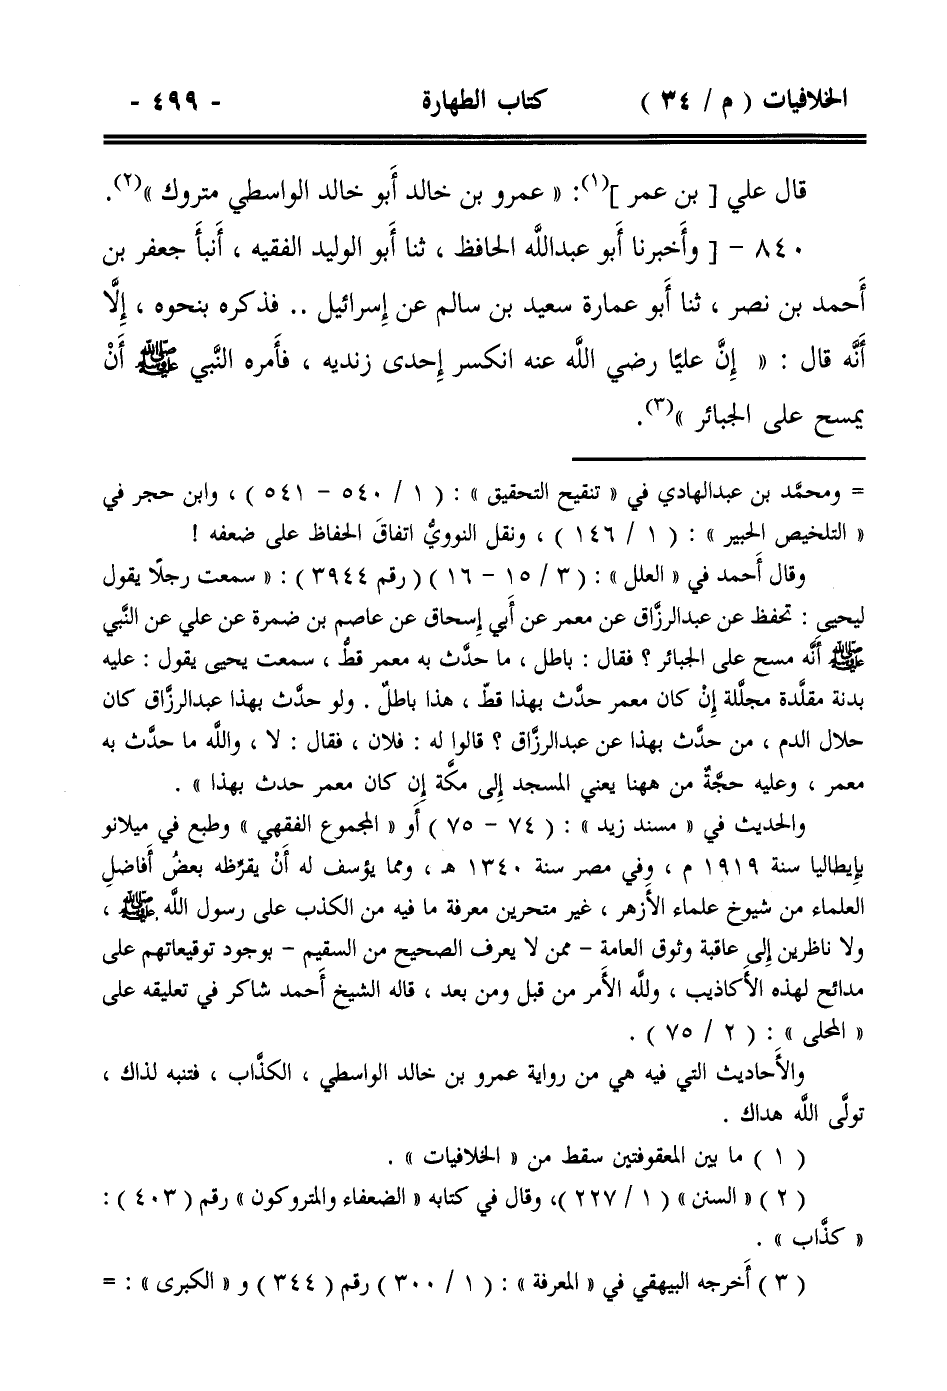 الخلافيات ( م / ٣٤ ) كتاب الطهارة - ٤٩٩ -
قال علي [ بن عمر ](١): « عمرو بن خالد أبو خالد الواسطي متروك »(٢).
٨٤٠ - [ وأَخبرنا أَبو عبداللَّه الحافظ ، ثنا أَبو الوليد الفقيه ، أَنبأَ جعفر بن
أَحمد بن نصر ، ثنا أَبو عمارة سعيد بن سالم عن إِسرائيل .. فذكره بنحوه ، إِلَّا
أَنَّه قال : « إِنَّ عليًا رضي اللَّه عنه انكسر إِحدى زنديه ، فأَمره النَّبي ﷺ أَنْ
يمسح على الجبائر »(٣).
= ومحمَّد بن عبدالهادي في « تنقيح التحقيق » : ( ١ / ٥٤٠ - ٥٤١ ) ، وابن حجر في
« التلخيص الحبير » : ( ١ / ١٤٦ ) ، ونقل النوويُّ اتفاقَ الحفاظ على ضعفه !
وقال أَحمد في « العلل » : ( ٣ / ١٥ - ١٦ ) ( رقم ٣٩٤٤ ) : « سمعت رجلًا يقول
ليحيى : تحفظ عن عبدالرزَّاق عن معمر عن أَبي إِسحاق عن عاصم بن ضمرة عن علي عن النَّبي
ﷺ أَنَّه مسح على الجبائر ؟ فقال : باطل ، ما حدَّث به معمر قطُّ ، سمعت يحيى يقول : عليه
بدنة مقلَّدة مجلَّلة إِنْ كان معمر حدَّث بهذا قطّ ، هذا باطلٌ . ولو حدَّث بهذا عبدالرزَّاق كان
حلال الدم ، من حدَّث بهذا عن عبدالرزَّاق ؟ قالوا له : فلان ، فقال : لا ، واللَّه ما حدَّث به
معمر ، وعليه حجَّةٌ من ههنا يعني المسجد إِلى مكَّة إِن كان معمر حدث بهذا » .
والحديث في « مسند زيد » : ( ٧٤ - ٧٥ ) أَو « المجموع الفقهي » وطبع في ميلانو
بإِيطاليا سنة ١٩١٩ م ، وفي مصر سنة ١٣٤٠ هـ ، ومما يؤسف له أَنْ يقرِّظه بعضُ أَفاضلِ
العلماء من شيوخ علماء الأَزهر ، غير متحرين معرفة ما فيه من الكذب على رسول اللَّه ﷺ ،
ولا ناظرين إِلى عاقبة وثوق العامة - ممن لا يعرف الصحيح من السقيم - بوجود توقيعاتهم على
مدائح لهذه الأَكاذيب ، وللَّه الأَمر من قبل ومن بعد ، قاله الشيخ أَحمد شاكر في تعليقه على
« المحلى » : ( ٢ / ٧٥ ) .
والأَحاديث التي فيه هي من رواية عمرو بن خالد الواسطي ، الكذَّاب ، فتنبه لذاك ،
تولَّى اللَّه هداك .
( ١ ) ما بين المعقوفتين سقط من « الخلافيات » .
( ٢ ) « السنن » ( ١ / ٢٢٧ )، وقال في كتابه « الضعفاء والمتروكون » رقم ( ٤٠٣ ) :
« كذَّاب » .
( ٣ ) أَخرجه البيهقي في « المعرفة » : ( ١ / ٣٠٠ ) رقم ( ٣٤٤ ) و « الكبرى » : =